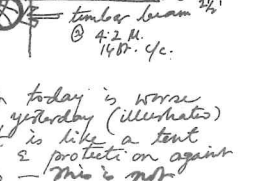 timber beam 2½'
@ 4.2 M.
14 ft. c/c.
today is worse
yesterday (illustrates)
is like a tent
& protection against
— This is not